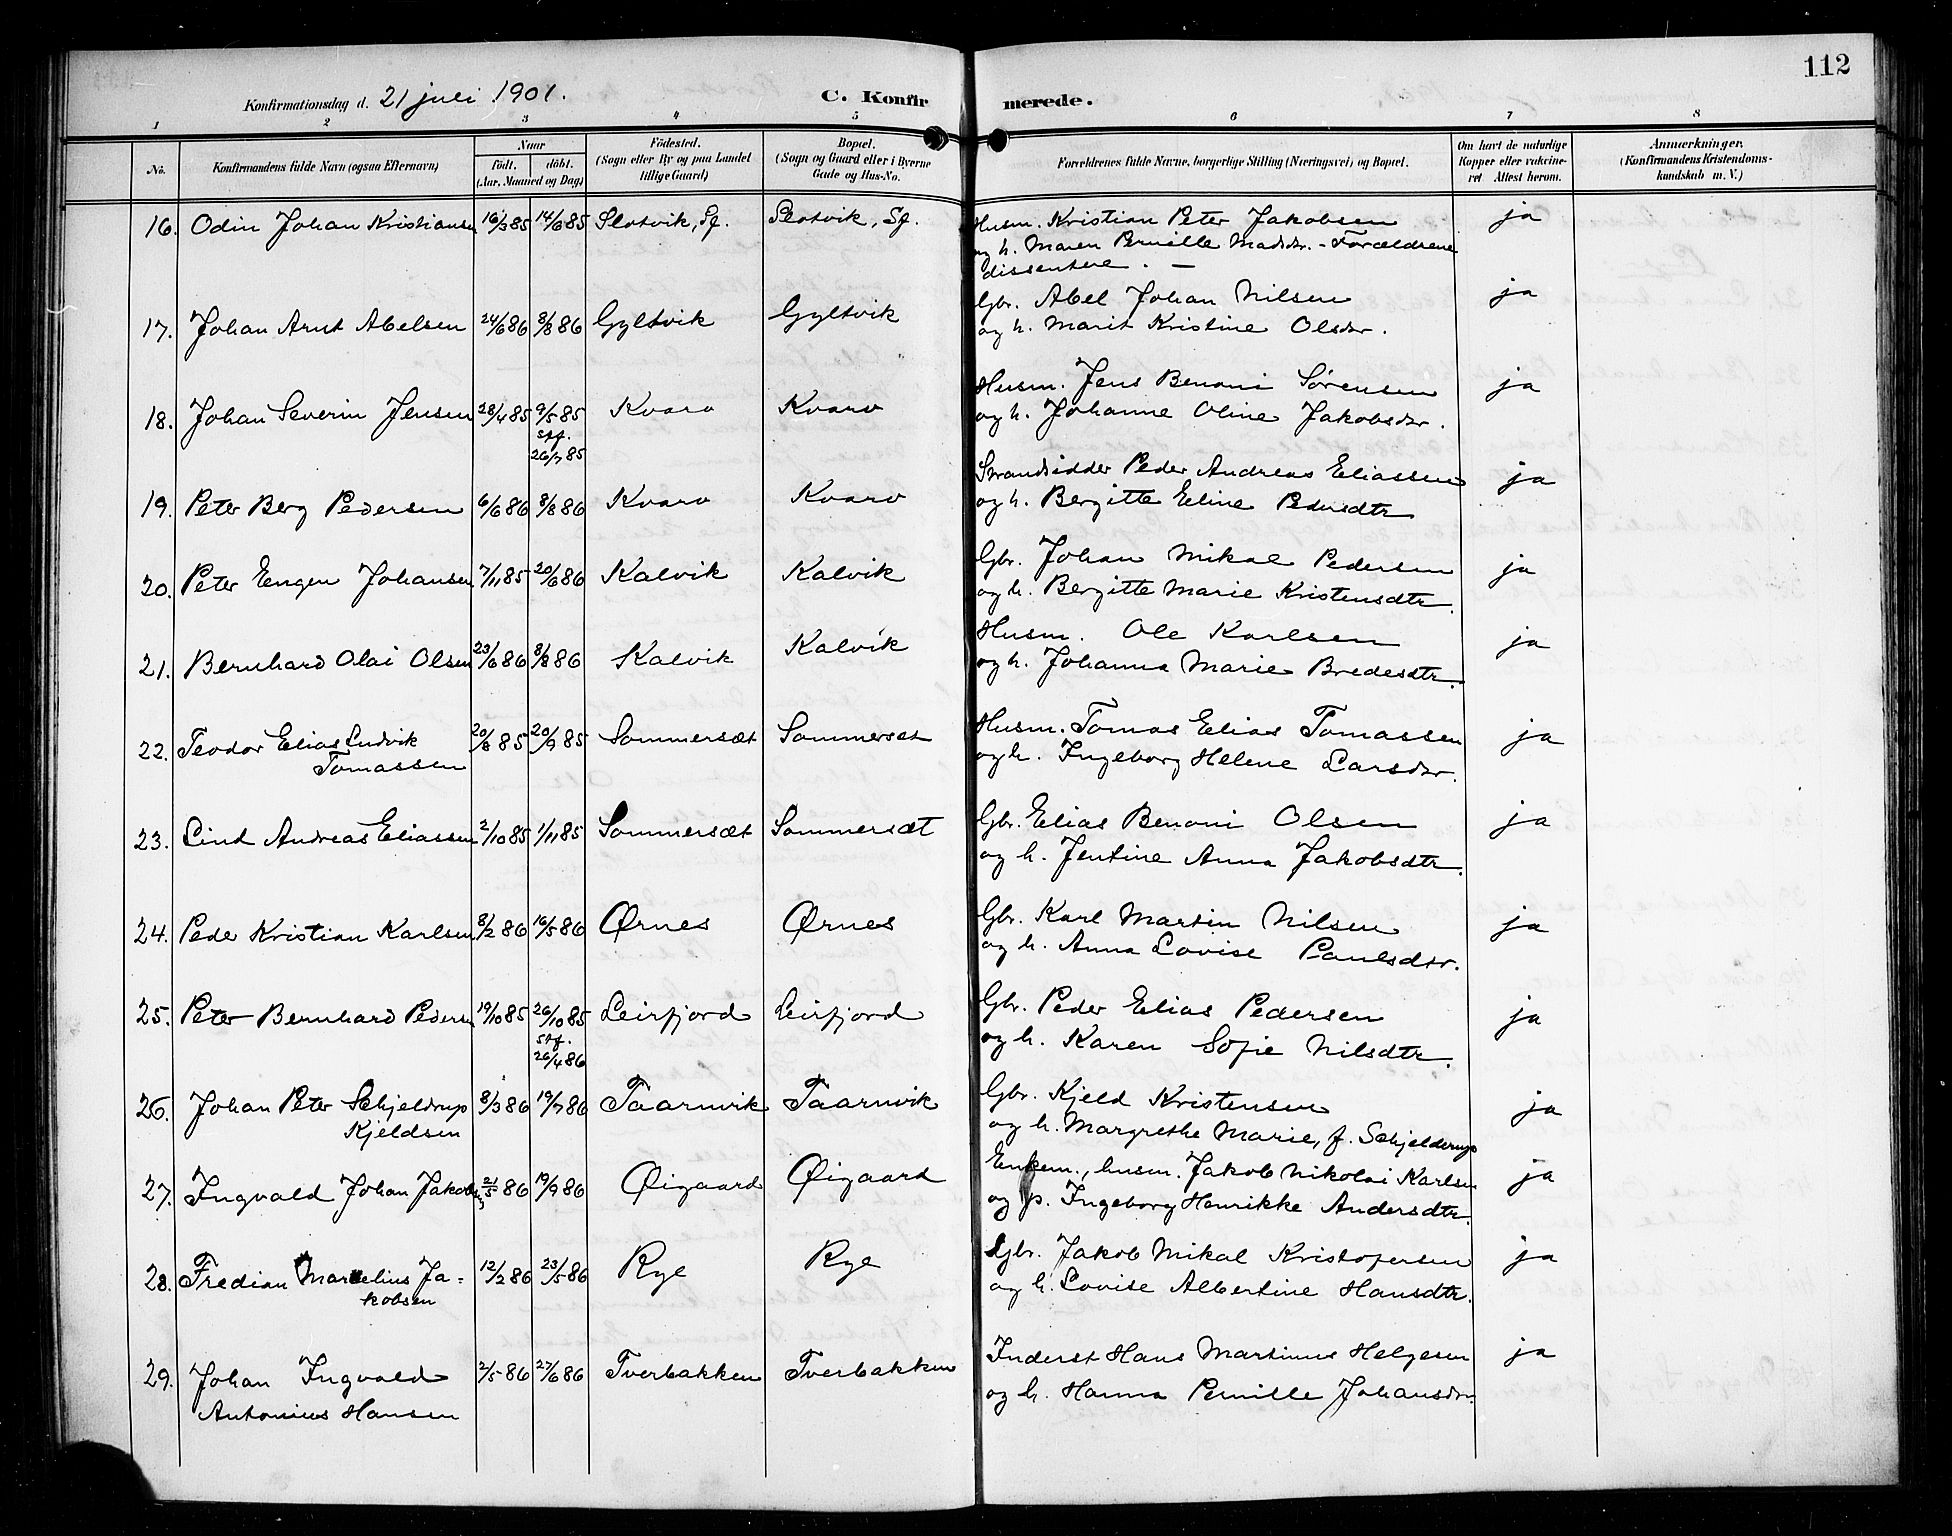 112
Konfirmationsdag d. 21 juli 1901. C. Konfirmerede.
1 2 3 4 5 6 7 8
No. Konfirmandens fulde Navn (ogsaa Efternavn) Naar födt. döbt. (Aar, Maaned og Dag) Födested. (Sogn eller By og paa Landet tillige Gaard) Bopæl. (Sogn og Gaard eller i Byerne Gade og Hus-No. Forældrenes fulde Navne, borgerlige Stilling (Næringsvei) og Bopæl. Om havt de naturlige Kopper eller vaccineret Attest herom. Anmærkninger. (Konfirmandens Kristendomskundskab m. V.)
16. Odin Johan Kristiansen 16/3 85 14/6 85 Slotvik, Sf. Slotvik, Sf. Husm. Kristian Peter Jakobsen ja
og h. Maren Pernille Madsdr. - Forældrene
dissentere. —
17. Johan Arnt Abelsen 24/6 86 8/8 86 Gyltvik Gyltvik Gbr. Abel Johan Nilsen ja
og h. Marit Kristine Olsdr.
18. Johan Severin Jensen 28/4 85 9/5 85 Kvarv Kvarv Husm. Jens Benoni Sörensen ja
stf. og h. Johanne Oline Jakobsdr.
26/7 85
19. Peter Berg Pedersen 6/6 86 8/8 86 Kvarv Kvarv Strandsidder Peder Andreas Eliassen ja
og h. Bergitte Eline Pedersdtr
20. Peter Engen Johansen 7/11 85 20/6 86 Kalvik Kalvik Gbr. Johan Mikal Pedersen ja
og h. Bergitte Marie Kristensdtr.
21. Bernhard Olai Olsen 23/6 86 8/8 86 Kalvik Kalvik Husm. Ole Karlsen ja
og h. Johanna Marie Bredesdtr.
22. Teodor Elias Ludvik 20/8 85 20/9 85 Sommersæt Sommersæt Husm. Tomas Elias Tomassen ja
Tomassen og h. Ingeborg Helene Larsdr.
23. Lind Andreas Eliassen 2/10 85 1/11 85 Sommersæt Sommersæt Gbr. Elias Benoni Olsen ja
og h. Jentine Anna Jakobsdtr.
24. Peder Kristian Karlsen 8/2 86 16/5 86 Ørnes Ørnes Gbr. Karl Martin Nilsen ja
og h. Anna Lovise Paulsdtr.
25. Peter Bernhard Pedersen 19/10 85 26/10 85 Leirfjord Leirfjord Gbr. Peder Elias Pedersen ja
stf. og h. Karen Sofie Nilsdtr.
26/4 86
26. Johan Peter Schjeldrup 8/3 86 19/7 86 Taarnvik Taarnvik Gbr. Kjeld Kristensen ja
Kjeldsen og h. Margrethe Marie, f. Schjelderup
27. Ingvald Johan Jakobsen 2/5 86 19/9 86 Øigaard Øigaard Enkem., husm. Jakob Nikolai Karlsen ja
og p. Ingeborg Henrikke Andersdtr.
28. Fredian Marselius Ja- 12/2 86 23/5 86 Rye Rye Gbr. Jakob Mikal Kristofersen ja
kobsen og h. Lovise Albertine Hansdtr.
29. Johan Ingvald 2/5 86 27/6 86 Tverbakken Tverbakken Inderst Hans Martinus Helgesen ja
Antonius Hansen og h. Hanna Pernille Johansdr.